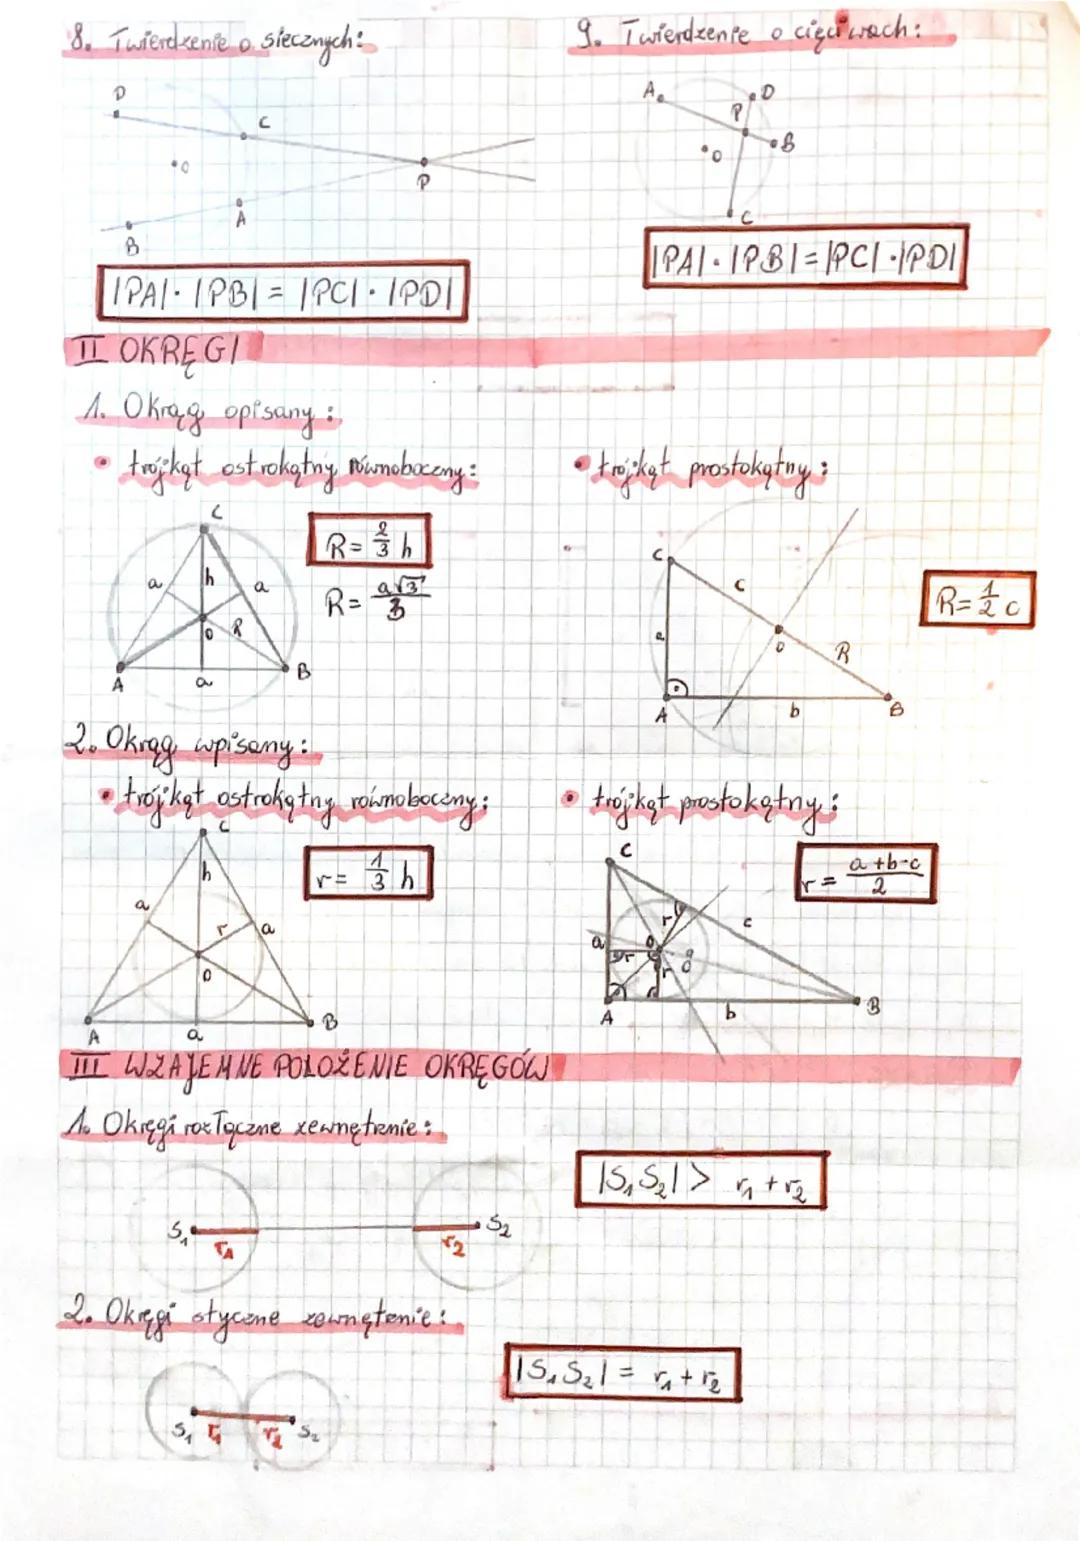 8. Twierdzenie o siecznych:
D
C
O
P
A
B
|PA| · |PB| = |PC| · |PD|
9. Twierdzenie o cięciwach:
A
D
P
B
O
C
|PA| · |PB| = |PC| · |PD|
II OKRĘGI
1. Okrąg opisany:
• trójkąt ostrokątny równoboczny:
C
a
h
a
O
R
A
a
B
R = 2/3 h
R = a√3/3
• trójkąt prostokątny:
C
c
a
O
R
A
b
B
R = 1/2 c
2. Okrąg wpisany:
• trójkąt ostrokątny równoboczny:
C
h
a
r
a
O
A
a
B
r = 1/3 h
• trójkąt prostokątny:
C
r
c
a
r
r
A
b
B
r = a+b-c/2
III WZAJEMNE POŁOŻENIE OKRĘGÓW
1. Okręgi rozłączne zewnętrznie:
S₁
r₁
r₂
S₂
|S₁S₂| > r₁ + r₂
2. Okręgi styczne zewnętrznie:
S₁
r₁
r₂
S₂
|S₁S₂| = r₁ + r₂